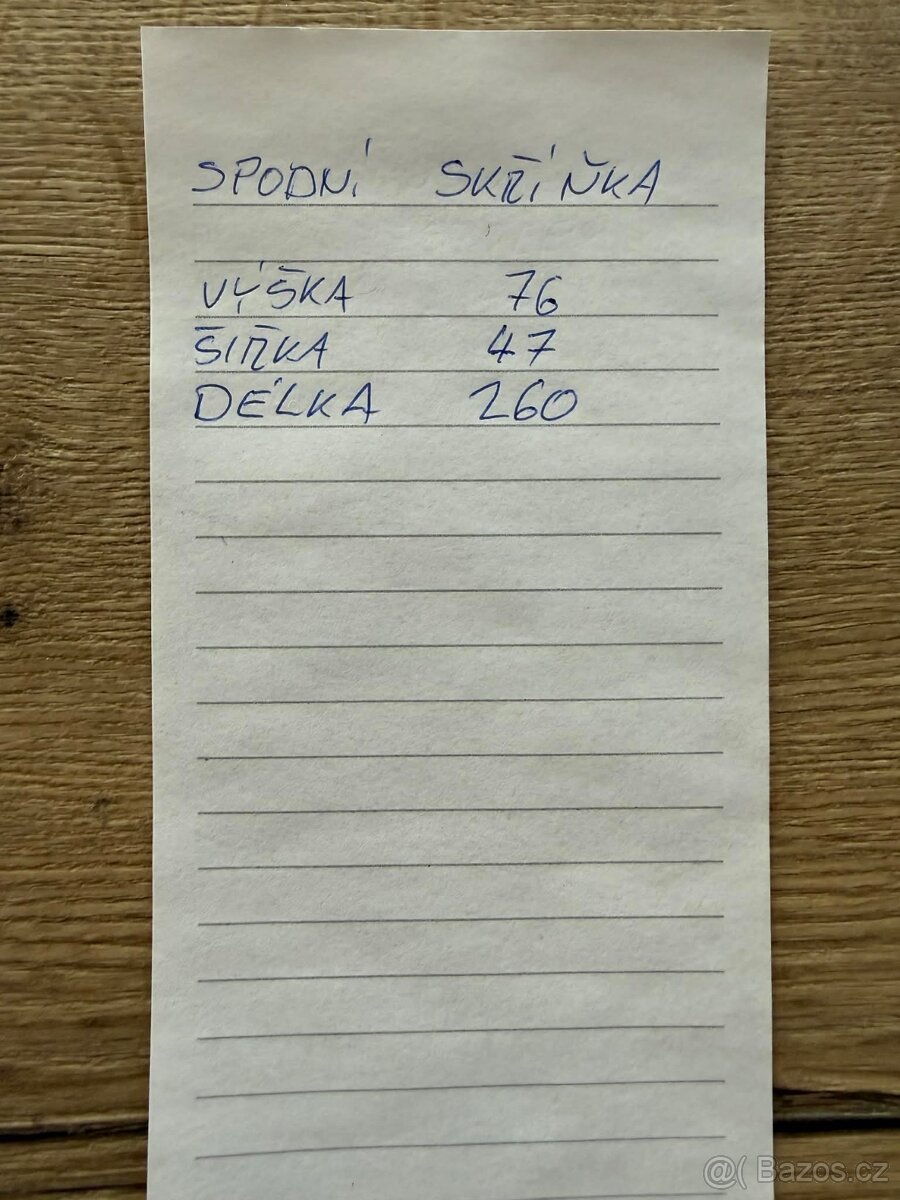 SPODNÍ SKŘÍŇKA
VÝŠKA 76
ŠÍŘKA 47
DÉLKA 260
@( Bazos.cz